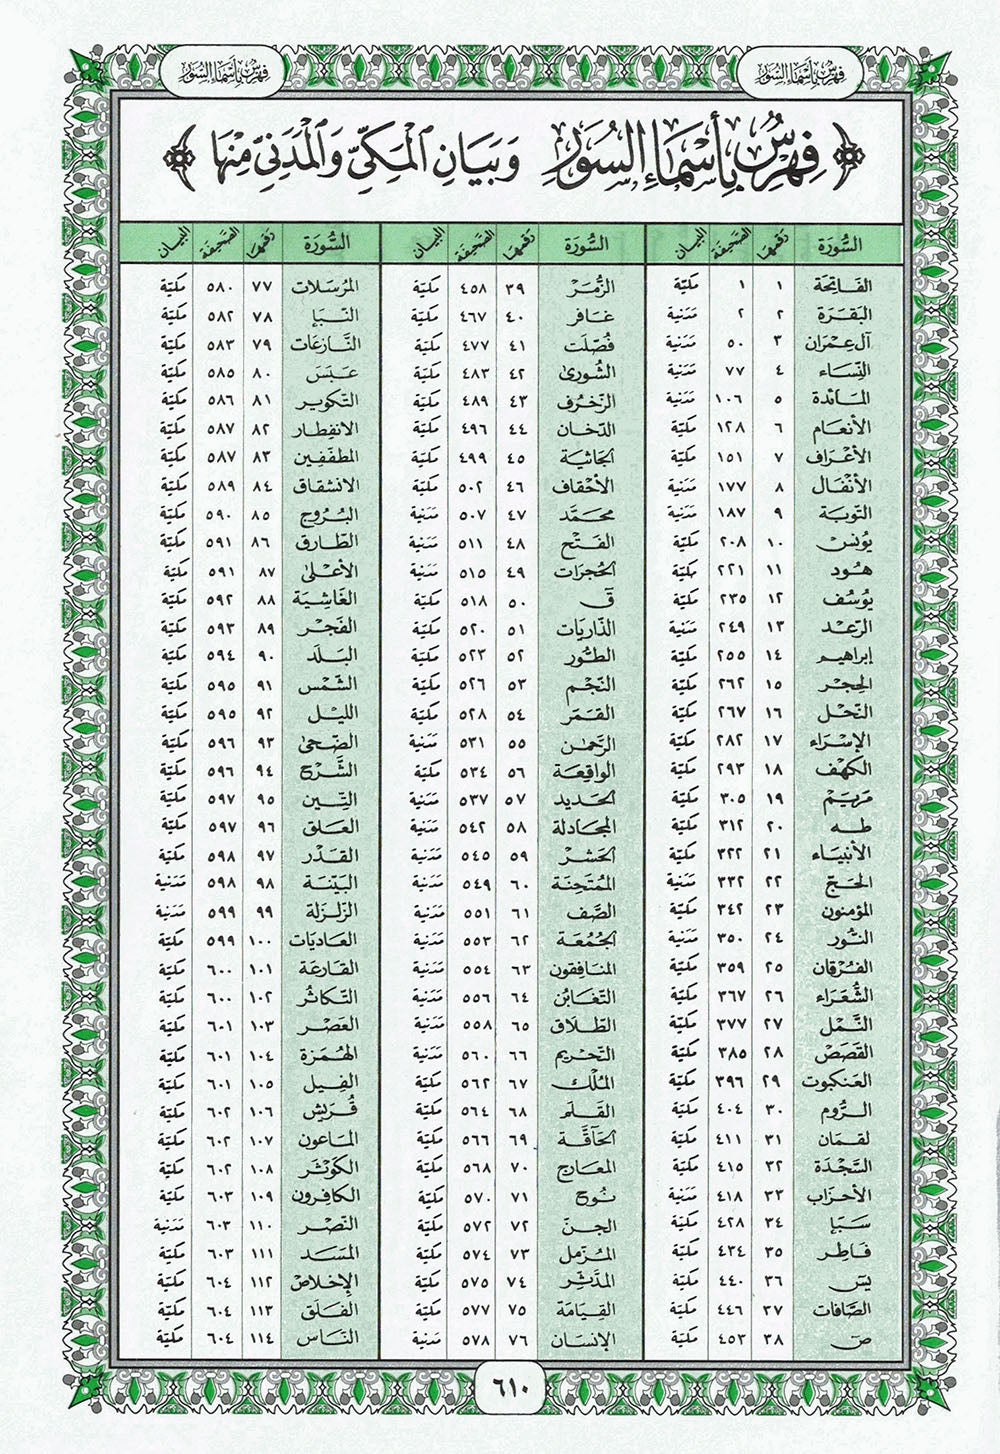 فهرس بأسماء السور
فهرس بأسماء السور
فِهْرِسٌ بِأَسْمَاءِ السُّوَرِ وَبَيَانِ الْمَكِّيِّ وَالْمَدَنِيِّ مِنْهَا
السُّورَة رقمها الصحيفة البيان
الفَاتِحَة ١ ١ مكيّة
البَقَرَة ٢ ٢ مدنية
آل عِمرَان ٣ ٥٠ مدنية
النِّسَاء ٤ ٧٧ مدنية
المَائدة ٥ ١٠٦ مدنية
الأنعَام ٦ ١٢٨ مكيّة
الأعْرَاف ٧ ١٥١ مكيّة
الأنْفَال ٨ ١٧٧ مدنية
التوبَة ٩ ١٨٧ مدنية
يُونسُ ١٠ ٢٠٨ مكيّة
هُود ١١ ٢٢١ مكيّة
يُوسُف ١٢ ٢٣٥ مكيّة
الرّعد ١٣ ٢٤٩ مدنية
إبراهيم ١٤ ٢٥٥ مكيّة
الحِجر ١٥ ٢٦٢ مكيّة
النّحل ١٦ ٢٦٧ مكيّة
الإسْرَاء ١٧ ٢٨٢ مكيّة
الكهْف ١٨ ٢٩٣ مكيّة
مَريَم ١٩ ٣٠٥ مكيّة
طه ٢٠ ٣١٢ مكيّة
الأنبيَاء ٢١ ٣٢٢ مكيّة
الحَجّ ٢٢ ٣٣٢ مدنية
المؤمنون ٢٣ ٣٤٢ مكيّة
النُّور ٢٤ ٣٥٠ مدنية
الفُرْقان ٢٥ ٣٥٩ مكيّة
الشُّعَرَاء ٢٦ ٣٦٧ مكيّة
النَّمْل ٢٧ ٣٧٧ مكيّة
القَصَصَ ٢٨ ٣٨٥ مكيّة
العَنكبوت ٢٩ ٣٩٦ مكيّة
الرُّوم ٣٠ ٤٠٤ مكيّة
لقمَان ٣١ ٤١١ مكيّة
السَّجْدَة ٣٢ ٤١٥ مكيّة
الأحْزاب ٣٣ ٤١٨ مدنية
سَبَإ ٣٤ ٤٢٨ مكيّة
فَاطِر ٣٥ ٤٣٤ مكيّة
يسٓ ٣٦ ٤٤٠ مكيّة
الصَّافات ٣٧ ٤٤٦ مكيّة
صٓ ٣٨ ٤٥٣ مكيّة
السُّورَة رقمها الصحيفة البيان
الزُّمَرْ ٣٩ ٤٥٨ مكيّة
غَافر ٤٠ ٤٦٧ مكيّة
فُصّلَت ٤١ ٤٧٧ مكيّة
الشّورىٰ ٤٢ ٤٨٣ مكيّة
الزخرُف ٤٣ ٤٨٩ مكيّة
الدّخان ٤٤ ٤٩٦ مكيّة
الجَاثية ٤٥ ٤٩٩ مكيّة
الأحْقاف ٤٦ ٥٠٢ مكيّة
محَمّد ٤٧ ٥٠٧ مدنية
الفَتْح ٤٨ ٥١١ مدنية
الحُجرَات ٤٩ ٥١٥ مدنية
قٓ ٥٠ ٥١٨ مكيّة
الذّاريَات ٥١ ٥٢٠ مكيّة
الطُّور ٥٢ ٥٢٣ مكيّة
النّجْم ٥٣ ٥٢٦ مكيّة
القَمَر ٥٤ ٥٢٨ مكيّة
الرّحمٰن ٥٥ ٥٣١ مدنية
الواقِعَة ٥٦ ٥٣٤ مكيّة
الحَديد ٥٧ ٥٣٧ مدنية
المجَادلة ٥٨ ٥٤٢ مدنية
الحَشر ٥٩ ٥٤٥ مدنية
المُمْتَحِنَة ٦٠ ٥٤٩ مدنية
الصَّف ٦١ ٥٥١ مدنية
الجُمُعَة ٦٢ ٥٥٣ مدنية
المنَافِقون ٦٣ ٥٥٤ مدنية
التّغَابُن ٦٤ ٥٥٦ مدنية
الطّلَاق ٦٥ ٥٥٨ مدنية
التّحْريم ٦٦ ٥٦٠ مدنية
المُلْك ٦٧ ٥٦٢ مكيّة
القَلَم ٦٨ ٥٦٤ مكيّة
الحَآقَّة ٦٩ ٥٦٦ مكيّة
المعَارج ٧٠ ٥٦٨ مكيّة
نُوح ٧١ ٥٧٠ مكيّة
الجِنّ ٧٢ ٥٧٢ مكيّة
المُزّمل ٧٣ ٥٧٤ مكيّة
المدّثر ٧٤ ٥٧٥ مكيّة
القيَامَة ٧٥ ٥٧٧ مكيّة
الإنسَان ٧٦ ٥٧٨ مدنية
السُّورَة رقمها الصحيفة البيان
المُرْسَلات ٧٧ ٥٨٠ مكيّة
النّبَإ ٧٨ ٥٨٢ مكيّة
النَّازعَات ٧٩ ٥٨٣ مكيّة
عَبسَ ٨٠ ٥٨٥ مكيّة
التّكوير ٨١ ٥٨٦ مكيّة
الانفِطار ٨٢ ٥٨٧ مكيّة
المطفّفِين ٨٣ ٥٨٧ مكيّة
الانشقاق ٨٤ ٥٨٩ مكيّة
البُرُوج ٨٥ ٥٩٠ مكيّة
الطّارق ٨٦ ٥٩١ مكيّة
الأعْلىٰ ٨٧ ٥٩١ مكيّة
الغَاشِيَة ٨٨ ٥٩٢ مكيّة
الفَجْر ٨٩ ٥٩٣ مكيّة
البَلَد ٩٠ ٥٩٤ مكيّة
الشّمْس ٩١ ٥٩٥ مكيّة
الليْل ٩٢ ٥٩٥ مكيّة
الضّحىٰ ٩٣ ٥٩٦ مكيّة
الشَّرْح ٩٤ ٥٩٦ مكيّة
التّين ٩٥ ٥٩٧ مكيّة
العَلق ٩٦ ٥٩٧ مكيّة
القَدْر ٩٧ ٥٩٨ مكيّة
البَيّنَة ٩٨ ٥٩٨ مدنية
الزلزَلة ٩٩ ٥٩٩ مدنية
العَاديَات ١٠٠ ٥٩٩ مكيّة
القَارعَة ١٠١ ٦٠٠ مكيّة
التّكاثُر ١٠٢ ٦٠٠ مكيّة
العَصْر ١٠٣ ٦٠١ مكيّة
الهُمَزة ١٠٤ ٦٠١ مكيّة
الفِيل ١٠٥ ٦٠١ مكيّة
قُرَيش ١٠٦ ٦٠٢ مكيّة
المَاعون ١٠٧ ٦٠٢ مكيّة
الكَوْثَر ١٠٨ ٦٠٢ مكيّة
الكافِرون ١٠٩ ٦٠٣ مكيّة
النّصْر ١١٠ ٦٠٣ مدنية
المَسَد ١١١ ٦٠٣ مكيّة
الإخلاص ١١٢ ٦٠٤ مكيّة
الفَلَق ١١٣ ٦٠٤ مكيّة
النّاس ١١٤ ٦٠٤ مكيّة
٦١٠